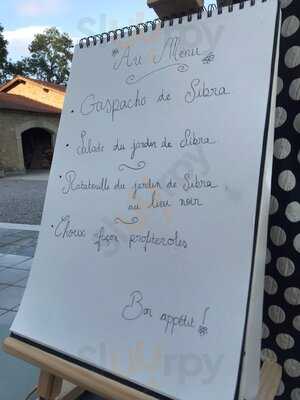 Au Menu
• Gaspacho de Sibra
• Salade du jardin de Sibra
• Ratatouille du jardin de Sibra
au lieu noir
• Choux façon profiteroles
Bon appétit !
Sluurpy